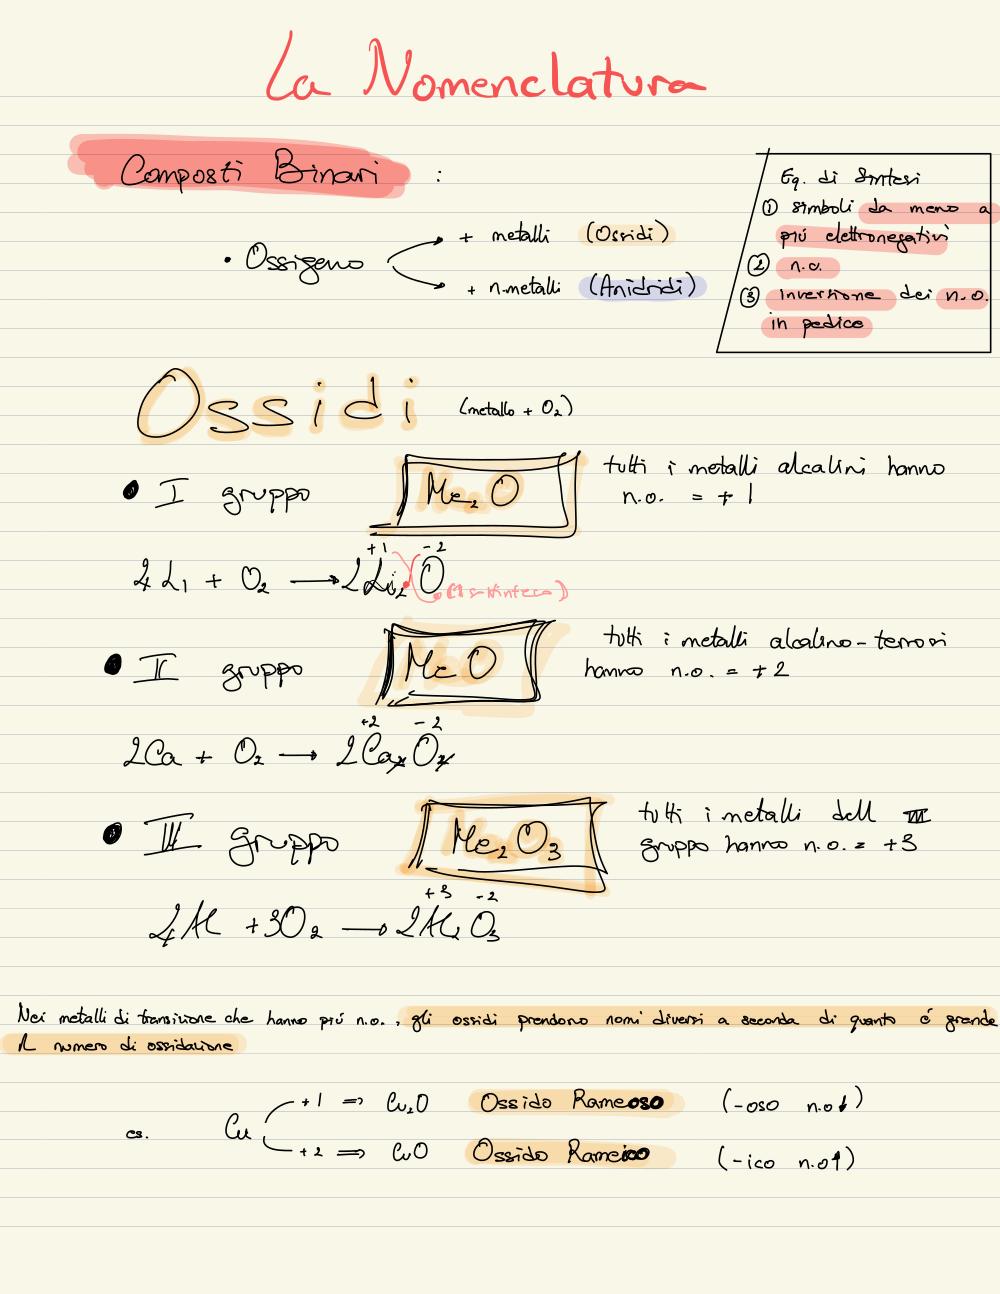 La Nomenclatura
Composti Binari :
• Ossigeno
+ metalli (Ossidi)
+ n.metalli (Anidridi)
Eq. di Sintesi
① simboli da meno a
più elettronegativi
② n.o.
③ inversione dei n.o.
in pedice
Ossidi (metallo + O₂)
• I gruppo Me₂O
tutti i metalli alcalini hanno
n.o. = +1
+1 -2
4Li + O₂ → 2Li₂O
• II gruppo MeO
tutti i metalli alcalino-terrosi
hanno n.o. = +2
+2 -2
2Ca + O₂ → 2Ca₂O₂
• III gruppo Me₂O₃
tutti i metalli dell III
gruppo hanno n.o. = +3
+3 -2
4Al +3O₂ → 2Al₂O₃
Nei metalli di transizione che hanno più n.o., gli ossidi prendono nomi diversi a seconda di quanto é grande
il numero di ossidazione
es. Cu
+1 => Cu₂O Ossido Rameoso (-oso n.o↓)
+2 => CuO Ossido Rameico (-ico n.o↑)